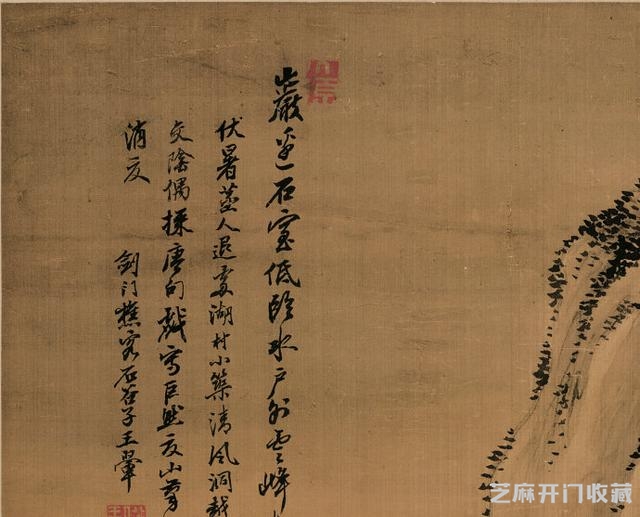 巖邊石室低臨水戶外雲峰
伏暑蒸人退處湖村小築清風洞
交陰偶採唐句戲寫巨然夏山
消夏
劍門樵客石谷子王翬
芝麻开门收藏